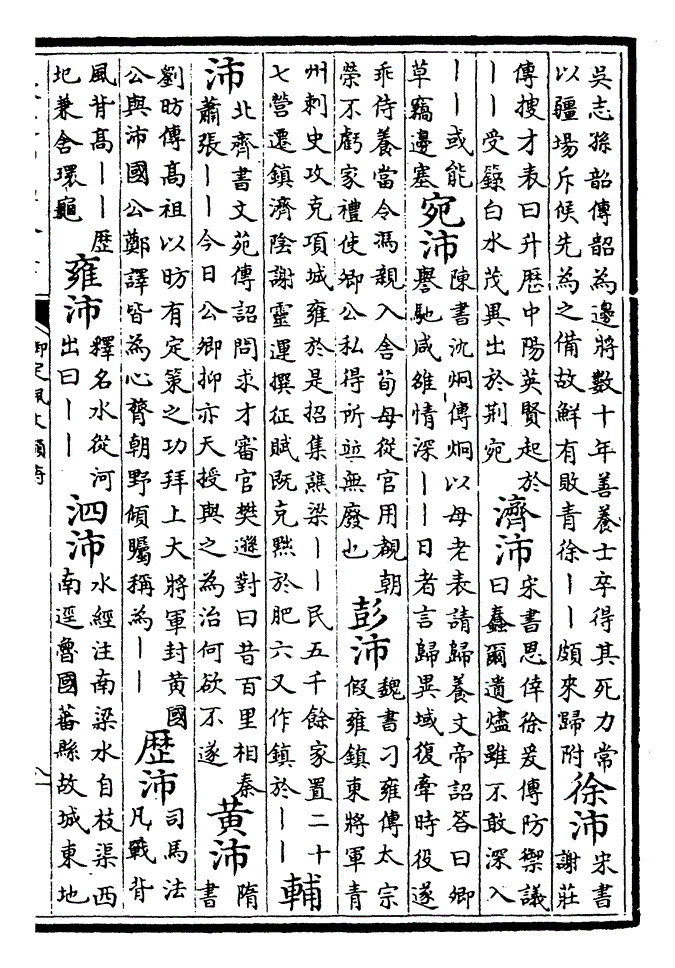 吳志孫韶傳韶為邊將數十年善養士卒得其死力常
以疆場斥候先為之備故鮮有敗青徐——頗來歸附
徐沛
宋書
謝莊
傳搜才表曰升歷中陽英賢起於
——受籙白水茂異出於荊宛
濟沛
宋書恩倖徐爰傳防禦議
曰蠢爾遺燼雖不敢深入
——或能
草竊邊塞
宛沛
陳書沈炯傳炯以母老表請歸養文帝詔答曰卿
譽馳咸雒情深——日者言歸異域復牽時役遂
乖侍養當令馮親入舍荀母從官用覩朝
榮不虧家禮使卿公私得所並無廢也
彭沛
魏書刁雍傳太宗
假雍鎮東將軍青
州刺史攻克項城雍於是招集譙梁——民五千餘家置二十
七營遷鎮濟陰謝靈運撰征賦既克黜於肥六又作鎮於——
輔
沛
北齊書文苑傳詔問求才審官樊遜對曰昔百里相秦
蕭張——今日公卿抑亦天授與之為治何欲不遂
黃沛
隋
書
劉昉傳高祖以昉有定策之功拜上大將軍封黃國
公與沛國公鄭譯皆為心膂朝野傾矚稱為——
歷沛
司馬法
凡戰背
風背高——歷
圮兼舍環龜
雍沛
釋名水從河
出曰——
泗沛
水經注南梁水自枝渠西
南逕魯國蕃縣故城東地